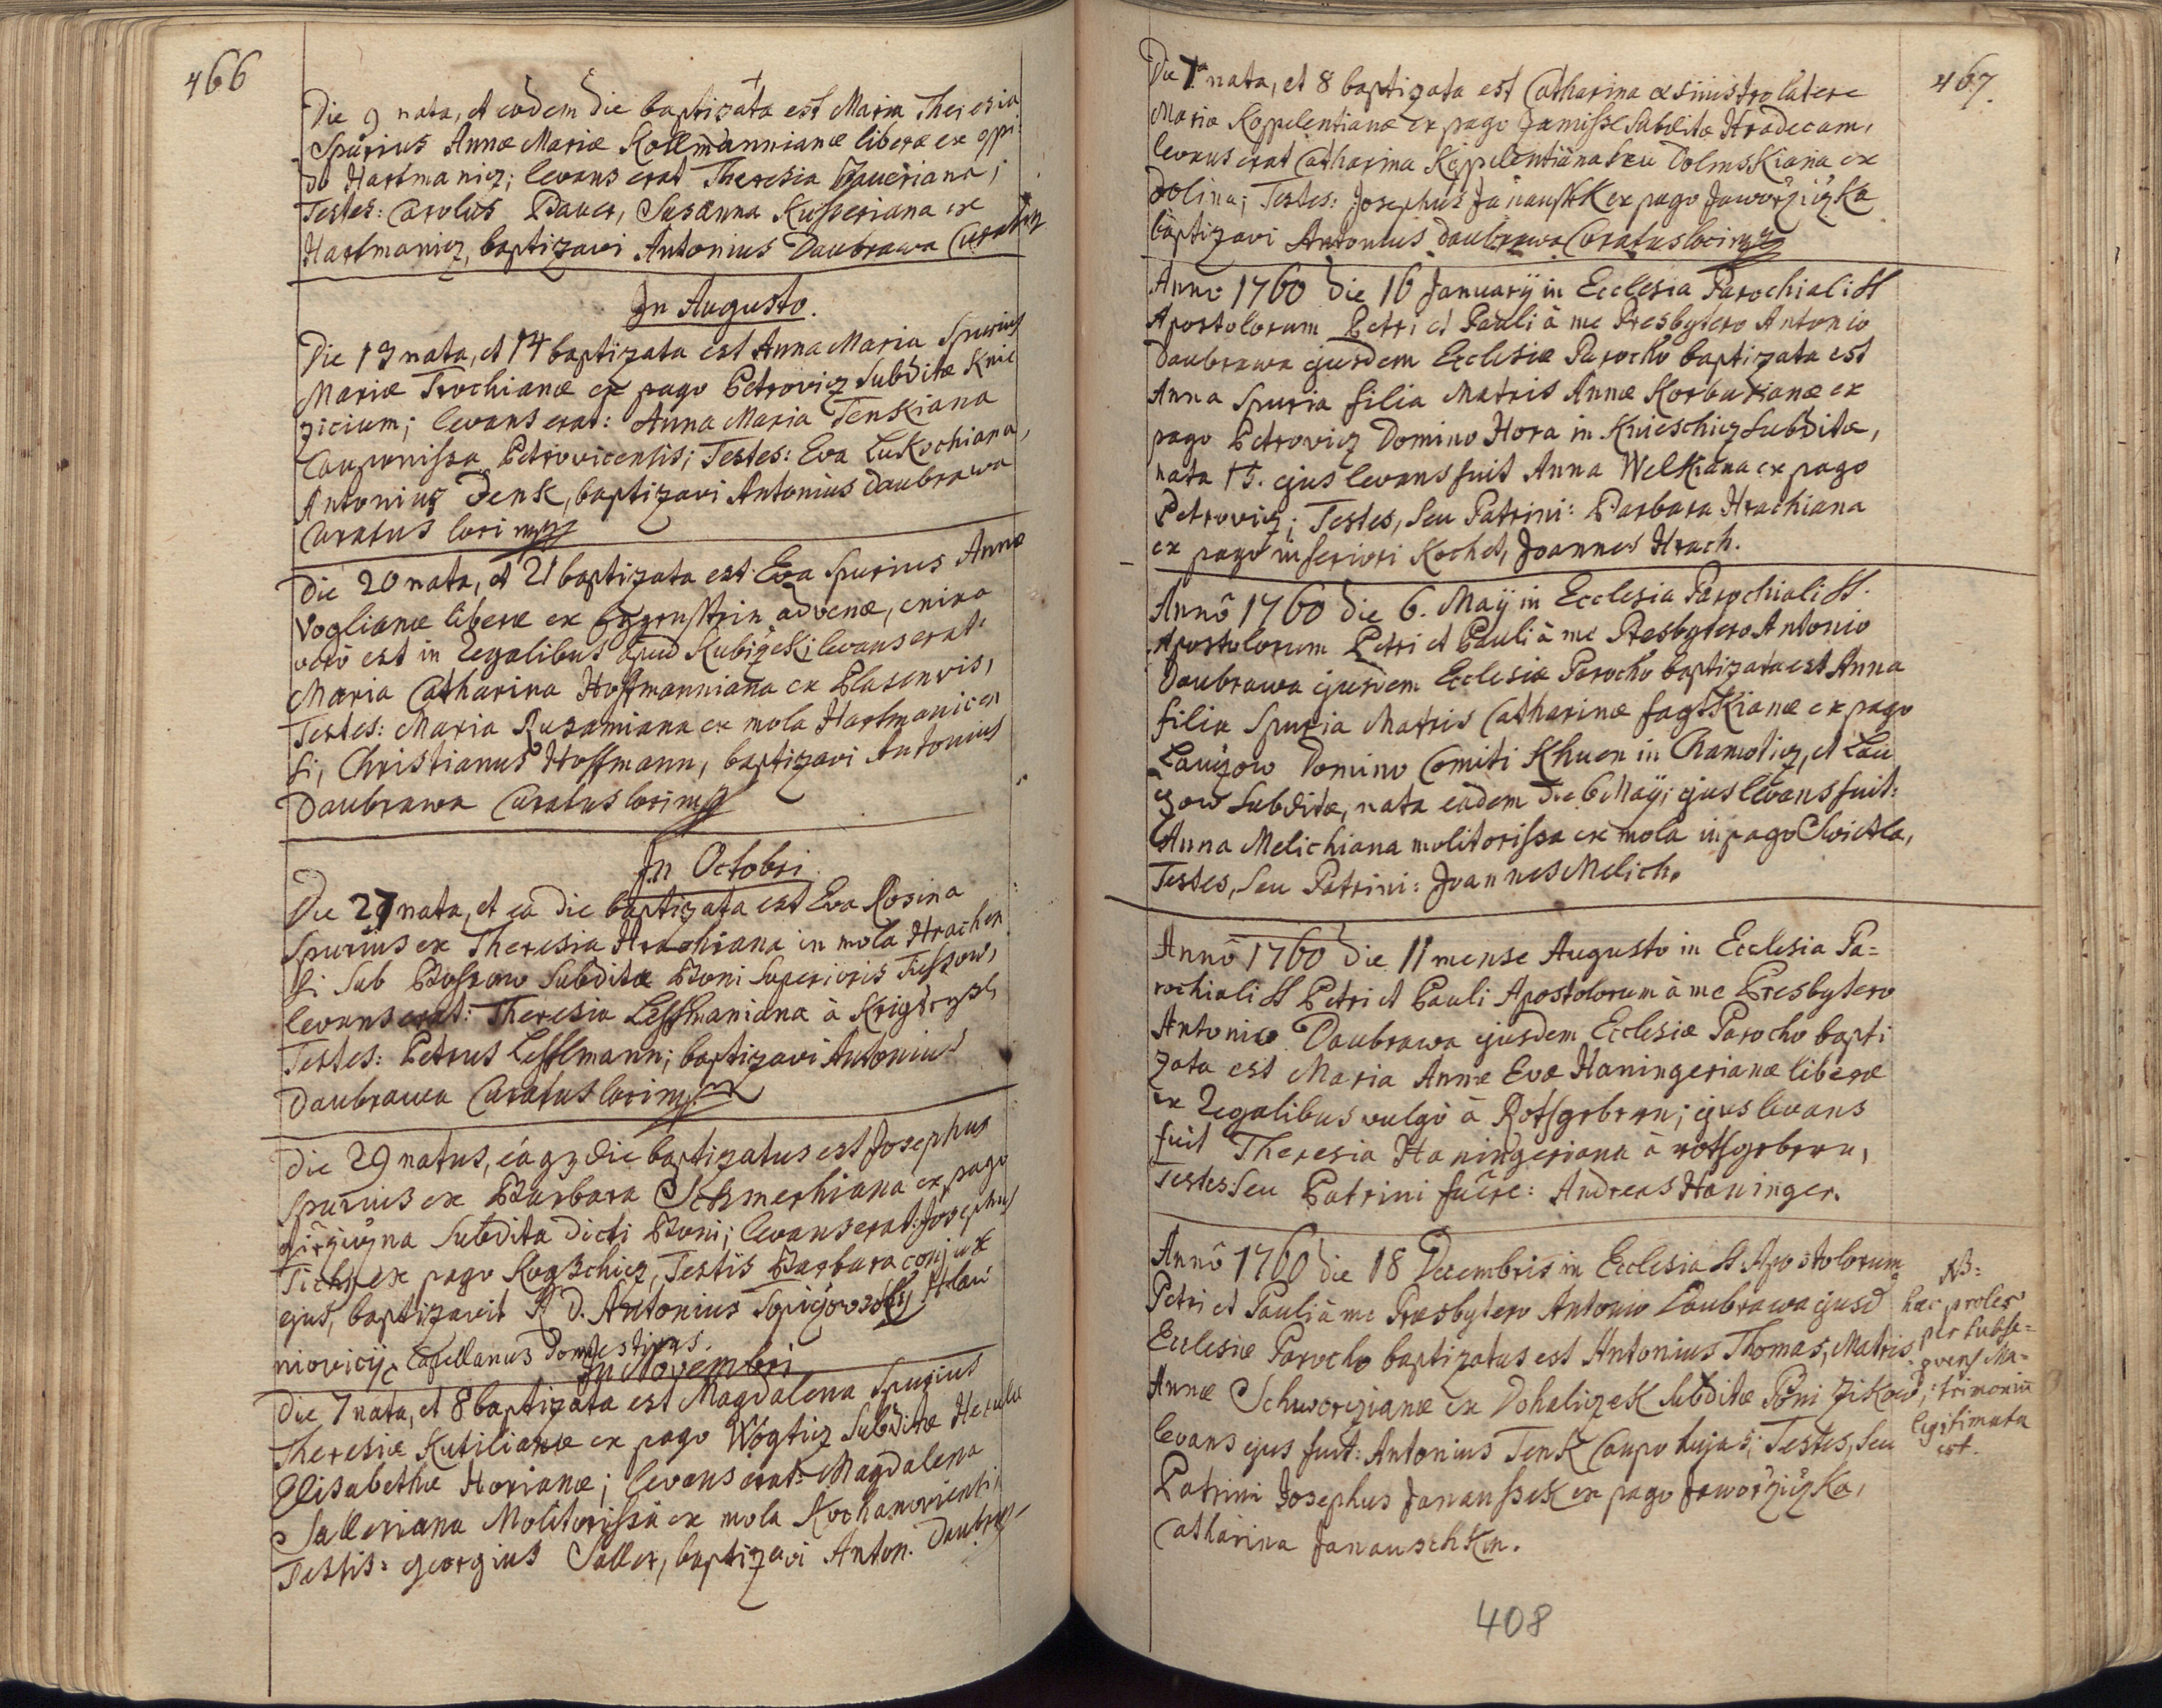 466
Die 9 nata, et eodem die baptizata est Maria Theresia
Spurius Annæ Mariæ Kollmannianæ liberæ ex oppi-
do Hartmanicz; levans erat Theresia Baueriana;
Testes: Carolus Bauer, Susanna Kusseriana ex
Hartmanicz, baptizavi Antonius Daubrawa Curatus
In Augusto.
Die 13 nata, et 14 baptizata est Anna Maria Spurius
Mariæ Trochianæ ex pago Petrovicz subditæ Knie
zicium; levans erat: Anna Maria Tenskiana
Cauponissa Petrovicensis; Testes: Eva Lukschiana,
Antonius Denk, baptizavi Antonius Daubrawa
Curatus loci mp
Die 20 nata, et 21 baptizata est Eva Spurius Annæ
Voglianæ liberæ ex advenæ, enixa
vero est in Regalibus apud Kubiczek; levans erat:
Maria Catharina Hoffmanniana ex Plasenvis,
Testes: Maria Rusamiana ex mola Hartmanicen
si, Christianus Hoffmann, baptizavi Antonius
Daubrawa Curatus loci mp
In Octobri.
Die 27 nata, et ea die baptizata est Eva Rosina
Spurius ex Theresia Hrachiana in mola Hrachen
si sub subditæ Boni Superioris Tieschow,
levans erat: Theresia Lesslmaniana à
Testes: Petrus Lesslmann; baptizavi Antonius
Daubrawa Curatus loci mp
Die 29 natus, eaqz die baptizatus est Josephus
Spurius ex Barbara ex pago
subdita dicti Boni; levans erat: Josephus
Tichy ex pago Rogschicz, Testis Barbara conjux
ejus, baptizavit R. D. Antonius
Capellanus Domesticus.
In Novembri
Die 7 nata, et 8 baptizata est Magdalena Spurius
Theresiæ Kutilianæ ex pago Wogticz subditæ
Elisabethæ Horianæ; levans erat: Magdalena
Salleriana Molitorissa ex mola Kochanoviensi
Testis: Georgius Saller, baptizavi Anton. Daubra-
467.
Die 7a nata, et 8 baptizata est Catharina ex sinistro latere
Mariæ Koppelentianæ ex pago Jamisse subditæ Hradecam,
levans erat Catharina Koppelentiana seu Dolmskiana ex
Dolina; Testes: Josephus Janaussek ex pago Jaworziczka
baptizavi Antonius Daubrawa Curatus loci mp
Anno 1760 Die 16 January in Ecclesia Parochiali SS
Apostolorum Petri et Pauli à me Presbytero Antonio
Daubrawa ejusdem Ecclesiæ Parocho baptizata est
Anna Spuria filia Matris Annæ Korbutianæ ex
pago Petrovicz Domino Hora in Knieschicz subditæ,
nata 15. ejus levans fuit Anna Welkiana ex pago
Petrovicz; Testes, seu Patrini: Barbara Hrachiana
ex pago inferiori Kochet, Joannes Hrach.
Annô 1760 die 6. Maÿ in Ecclesia Parochiali SS.
Apostolorum Petri et Pauli à me Presbytero Antonio
Daubrawa ejusdem Ecclesiæ Parocho baptizata est Anna
filia Spuria Matris Catharinæ ex pago
Lauczow Domino Comiti Khuen in Chamoticz, et Lau
czow subditæ, nata eadem die 6 Maÿ; ejus levans fuit:
Anna Melichiana molitorissa ex mola in pago Swietla,
Testes, seu Patrini: Joannes Melich.
Annô 1760 die 11 mense Augusto in Ecclesia Pa=
rochiali SS Petri et Pauli Apostolorum à me Presbytero
Antonio Daubrawa ejusdem Ecclesiæ Parocho bapti
zata est Maria Annæ Evæ Haningerianæ liberæ
ex Regalibus vulgò à Rotsgrbern; ejus levans
fuit Theresia Haningeriana à rotsgrbern,
Testes seu Patrini fuêre: Andreas Haninger.
Annô 1760 die 18 Decembris in Ecclesia SS Apostolorum
Petri et Pauli à me Præsbytero Antonio Daubrawa ejusd
Ecclesiæ Parocho baptizatus est Antonius Thomas, Matris
Annæ Schworczianæ ex Dohaliczek subditæ Pôni Zikow;
levans ejus fuit: Antonius Tenk Caupo hujas; Testes, seu
Patrini Josephus Janaussek ex pago Jaworziczka,
Catharina Janauschkin.
NB:
hæc proles
per subse=
quens Ma=
trimoniũ
legitimata
est.
408